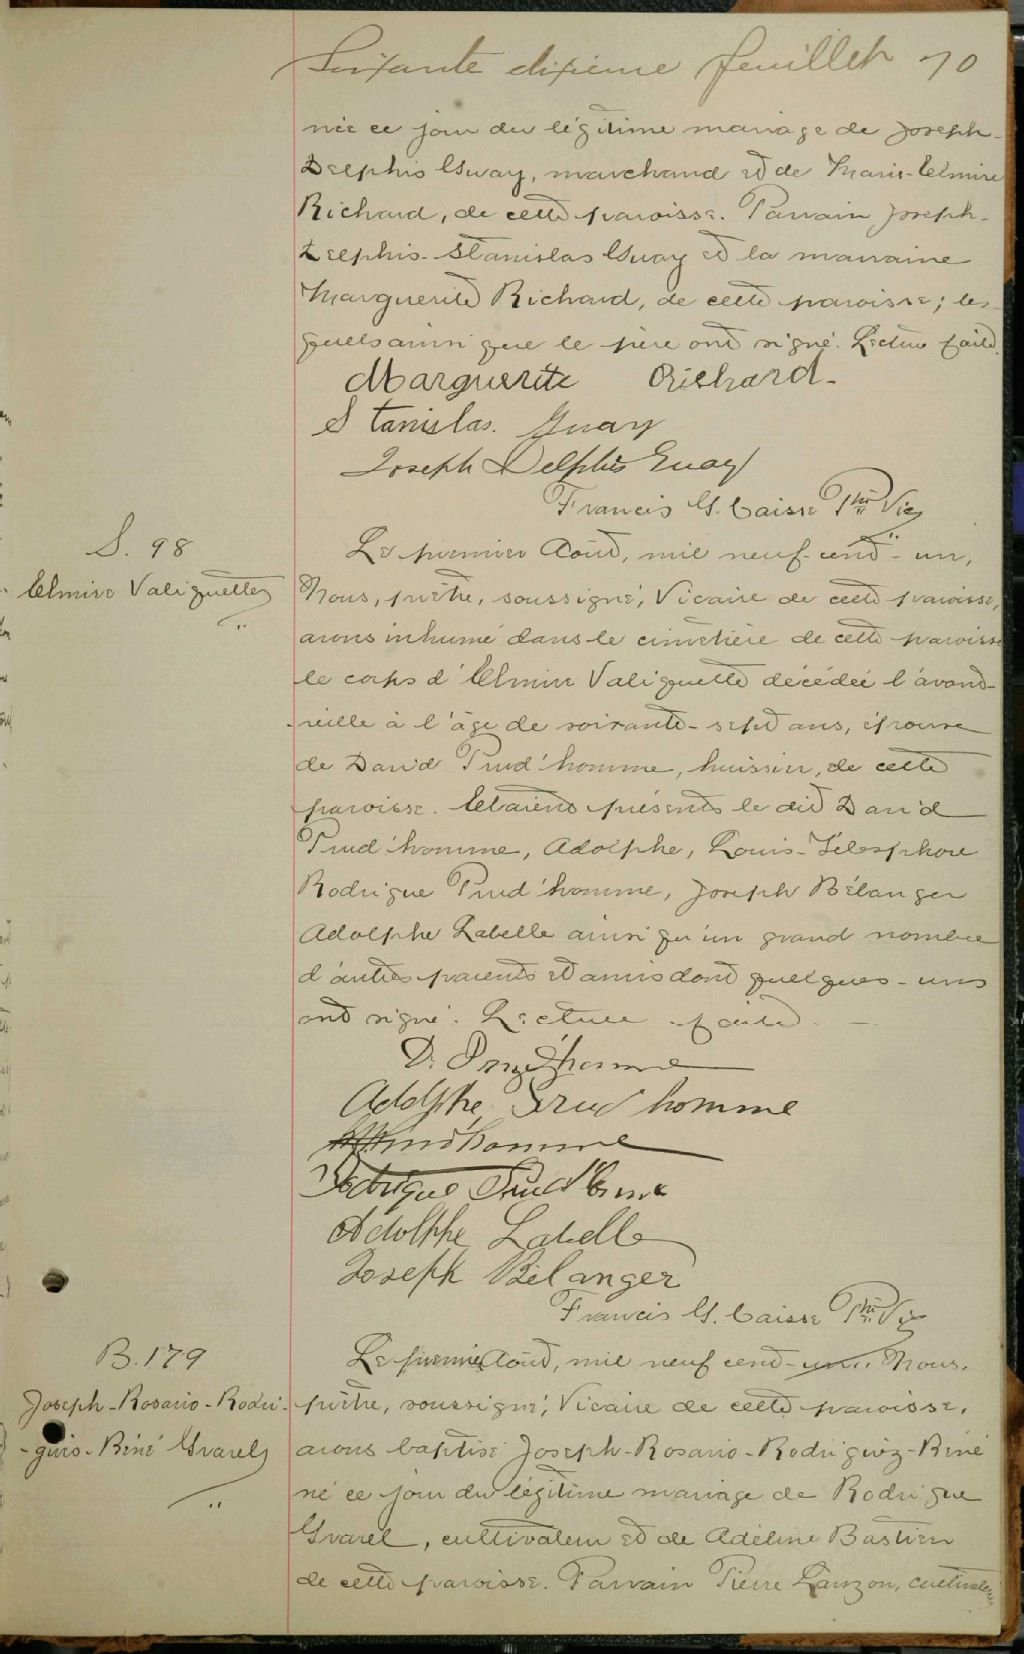 Soixante dixième feuillet 70
née ce jour du légitime mariage de Joseph-
Delphis Guay, marchand et de Marie-Elmire
Richard, de cette paroisse. Parrain Joseph-
Delphis-Stanislas Guay et la marraine
Marguerite Richard, de cette paroisse; les-
quels ainsi que le père ont signé. Lecture faite.
Marguerite Richard
Stanislas. Guay
Joseph Delphis Guay
Francis G. Caisse Ptre Vic
S. 98
Elmire Valiquette
Le premier Août, mil neuf-cent-un,
Nous, prêtre, soussigné, Vicaire de cette paroisse,
avons inhumé dans le cimetière de cette paroisse
le corps d'Elmire Valiquette décédée l'avant-
veille à l'âge de soixante-sept ans, épouse
de David Prud'homme, huissier, de cette
paroisse. Etaient présents le dit David
Prud'homme, Adolphe, Louis-Télesphore
Rodrigue Prud'homme, Joseph Bélanger
Adolphe Labelle ainsi qu'un grand nombre
d'autres parents et amis dont quelques-uns
ont signé. Lecture faite.
D. Prud'homme
Adolphe Prud'homme
Prud'homme
Rodrigue Prud'homme
Adolphe Labelle
Joseph Bélanger
Francis G. Caisse Ptre Vic
B. 179
Joseph-Rosario-Rodri-
guis-Réné Gvarel
Le premier Août, mil neuf cent-un, Nous,
prêtre, soussigné, Vicaire de cette paroisse,
avons baptisé Joseph-Rosario-Rodriguez-Réné
né ce jour du légitime mariage de Rodrigue
Gvarel, cultivateur et de Adéline Bastien
de cette paroisse. Parrain Pierre Lauzon, cultivateur